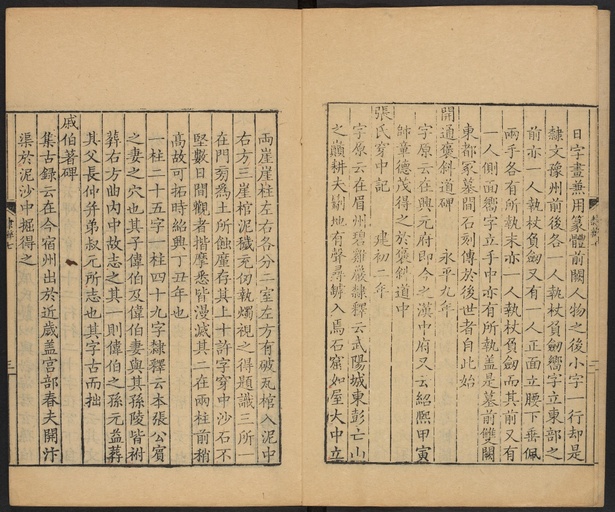 日字畫兼用篆體前闕人物之後小字一行却是
隸文豫州前後各一人執杖負劒嚮字立東部之
前亦一人執杖負劒又有一人正面立腰下垂佩
兩手各有所執末亦一人執杖負劒而其前又有
一人側面嚮字立手中亦有所執蓋是墓前雙闕
東都冢墓間石刻傳於後世者自此始
開通褒斜道碑 永平九年
字原云在興元府即今之漢中府又云紹熙甲寅
帥章德茂得之於褒斜道中
張氏穿中記 建初二年
字原云在眉州碧雞巖隸釋云武陽城東彭亡山
之巔耕夫劚地有聲尋罅入焉石窟如屋大中立
兩崖崖柱左右各分二室左方有破瓦棺入泥中
右方三崖棺泥穢充仞執燭視之得題識三所一
在門菊爲土所蝕塵存其上十許字穿中沙石不
堅數日間觀者揩摩悉皆漫滅其二在兩柱前稍
高故可拓時紹興丁丑年也
一柱二十五字一柱四十九字隸釋云本張公賓
之妻之穴也其子偉伯及偉伯妻與其孫陵皆祔
葬右方曲内中故志之其一則偉伯之孫元益葬
其父長仲并弟叔元所志也其字古而拙
戚伯著碑
集古錄云在今宿州出於近歲蓋宫部春夫開汴
渠於泥沙中掘得之